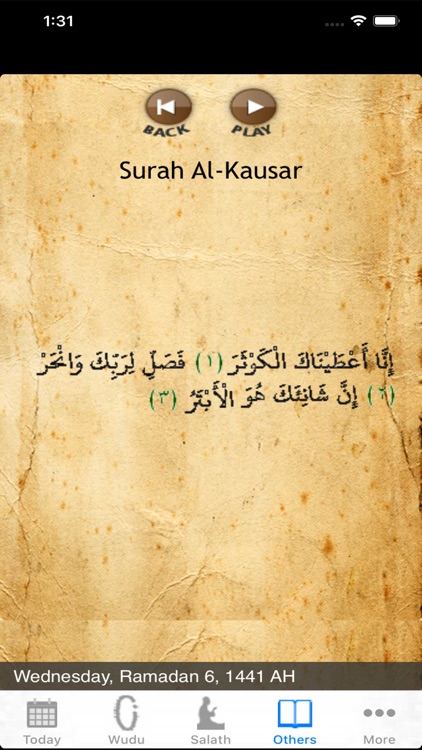 1:31
BACK
PLAY
Surah Al-Kausar
إِنَّا أَعْطَيْنَاكَ الْكَوْثَرَ (١) فَصَلِّ لِرَبِّكَ وَانْحَرْ
(٢) إِنَّ شَانِئَكَ هُوَ الْأَبْتَرُ (٣)
Wednesday, Ramadan 6, 1441 AH
Today
Wudu
Salath
Others
More